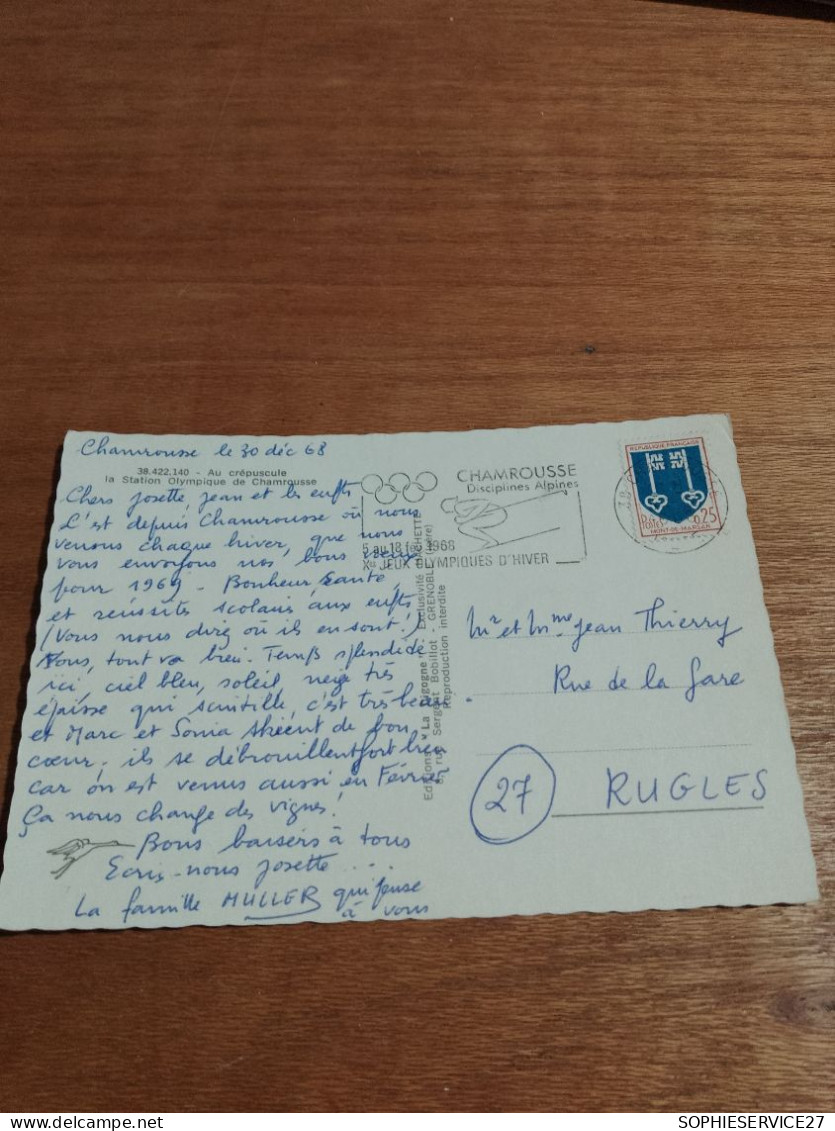 Chamrousse le 30 déc 68
38.422.140 - Au crépuscule
la Station Olympique de Chamrousse
Chers Josette Jean et les enfts
C'est depuis Chamrousse où nous
venons chaque hiver, que nous
vous envoyons nos bons vœux
pour 1969 - Bonheur, Santé,
et réussites scolaires aux enfts
(Vous nous direz où ils en sont!)
Nous, tout va bien. Temps splendide
ici, ciel bleu, soleil neige très
épaisse qui scintille, c'est très beau.
et Marc et Sonia skient de bon
cœur. ils se débrouillent fort bien
car on est venus aussi en Février
Ça nous change des vignes!
Bons baisers à tous
Ecris-nous Josette ...
La famille MULLER qui pense
à vous
Editions "La Cigogne"
rue Sergent Bobillot - GRENOBLE (Isère)
Exclusivité HACHETTE
Reproduction interdite
CHAMROUSSE
Disciplines Alpines
5 au 18 fév. 1968
Xes JEUX OLYMPIQUES D'HIVER
REPUBLIQUE FRANÇAISE
POSTES 0,25
MONT-DE-MARSAN
38
Mr et Mme Jean Thierry
Rue de la Gare
27 RUGLES
SOPHIESERVICE27